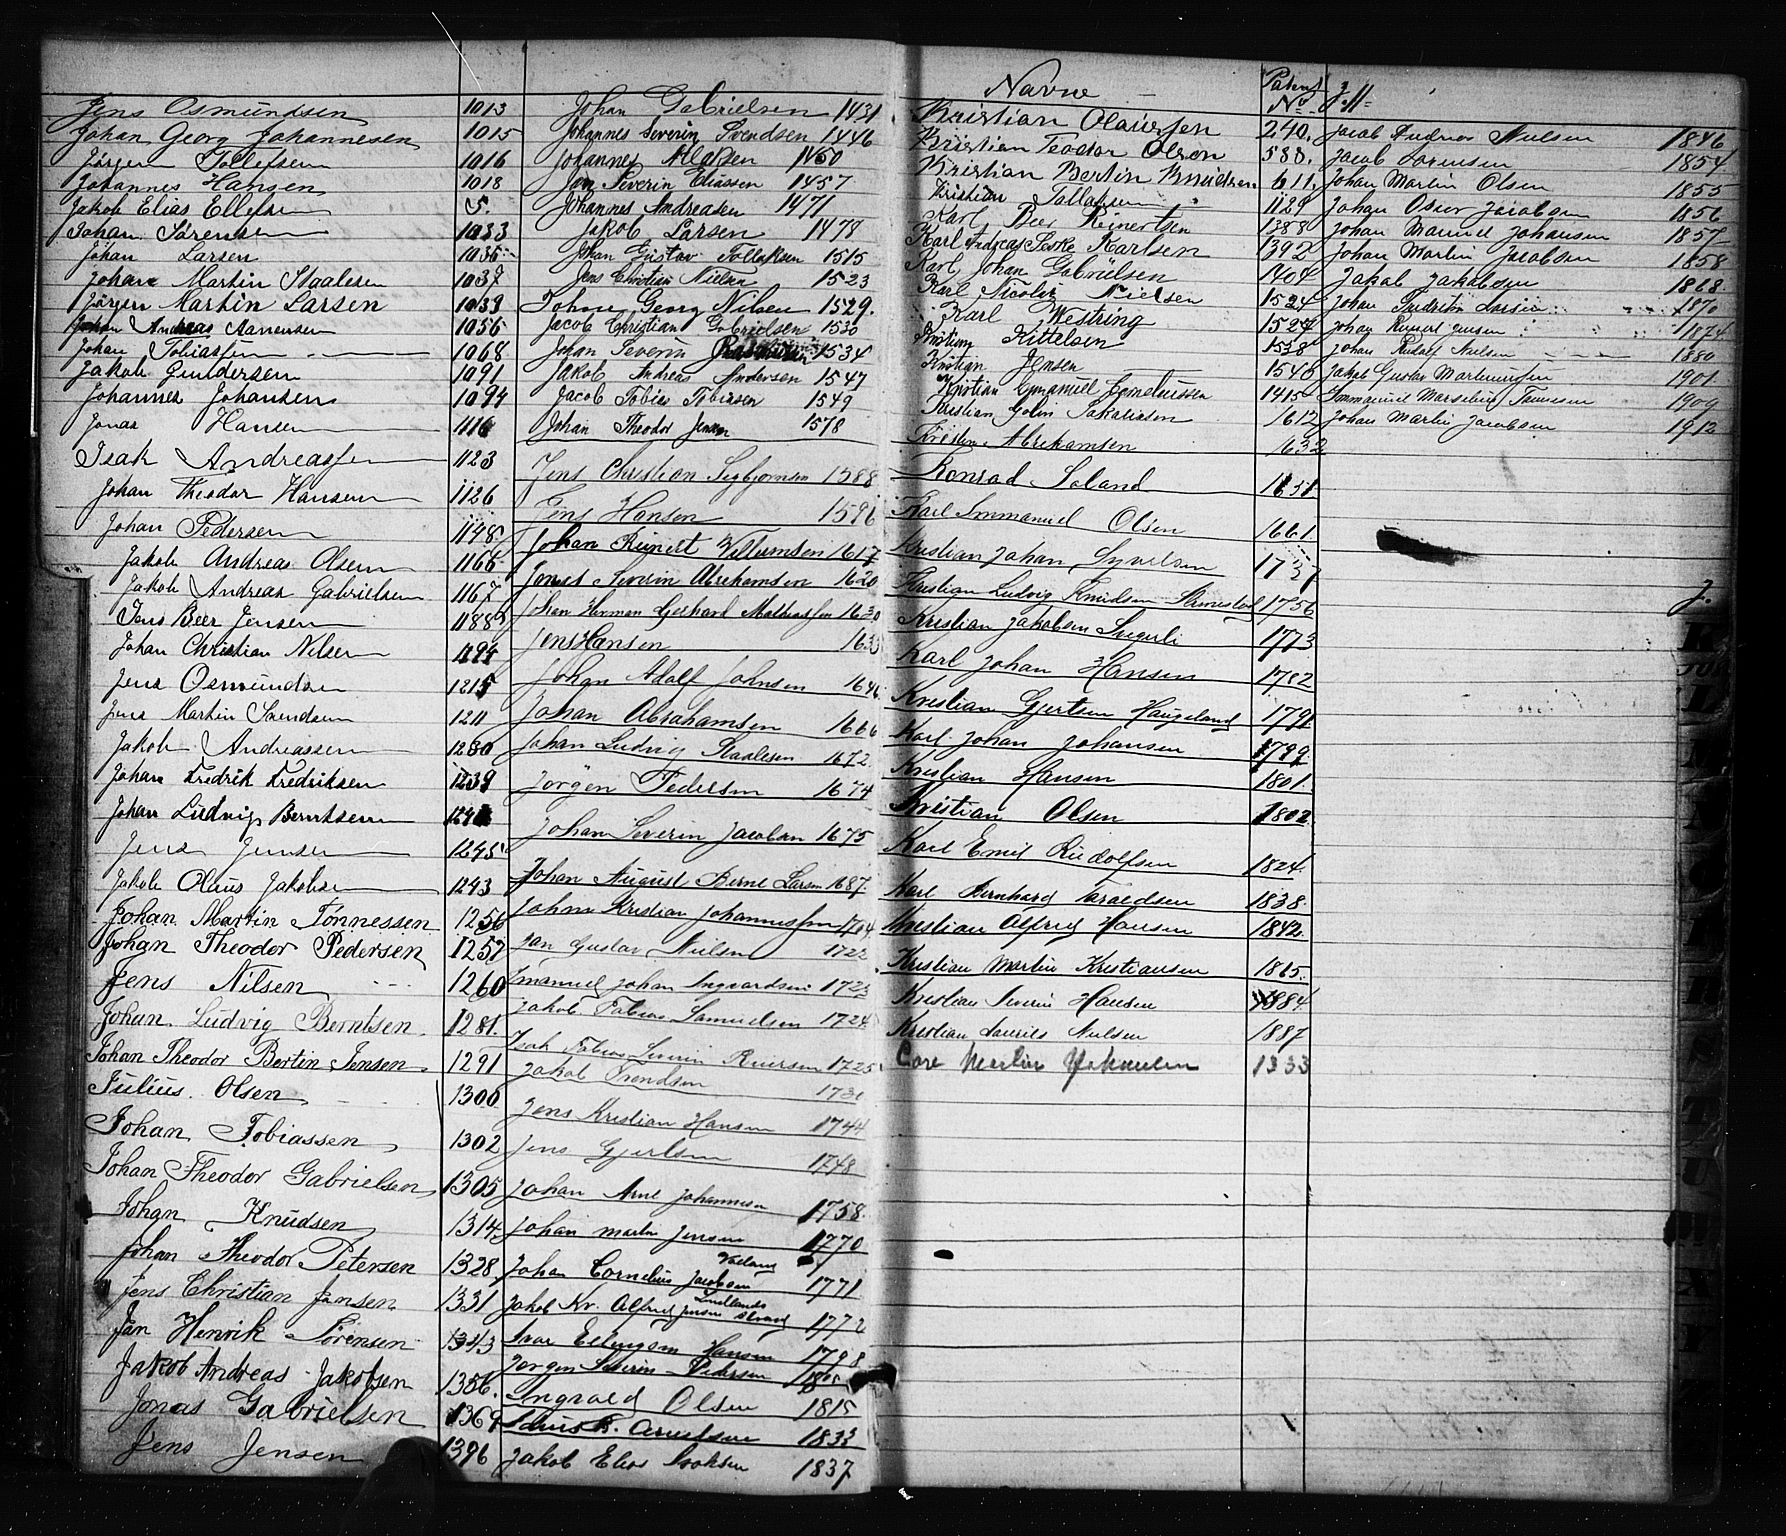 Jens Osmundsen 1013
Johan Georg Johannesen 1015
Jørgen Tollefsen 1016
Johannes Hansen 1018
Jakob Elias Ellefsen 5.
Johan Sørensen 1033
Johan Larsen 1035
Johan Martin Staalesen 1037
Jørgen Martin Larsen 1039
Johan Andreas Aanensen 1056
Johan Tobiassen 1068
Jakob Gundersen 1091
Johannes Johansen 1094
Jonas Hansen 1116
Isak Andreassen 1123
Johan Theodor Hansen 1126
Johan Pedersen 1148
Jakob Andreas Olsen 1165
Jakob Andreas Gabrielsen 1167
Jens Beer Jensen 1188
Johan Christian Nilsen 1194
Jens Osmundsen 1215
Jens Martin Svendsen 1211
Jakob Andreassen 1280
Johan Fredrik Fredriksen 1239
Johan Ludvig Berntsen
Jens Jensen 1245
Jakob Olaus Jakobsen 1243
Johan Martin Tønnessen 1256
Johan Theodor Pedersen 1257
Jens Nilsen 1260
Johan Ludvig Berntsen 1281.
Johan Theodor Bertin Jensen 1291
Julius Olsen 1300
Johan Tobiassen 1302
Johan Theodor Gabrielsen 1305
Johan Knudsen 1314
Johan Theodor Petersen 1328
Jens Christian Jansen 1331
Jan Henrik Sørensen 1343
Jakob Andreas Jakobsen 1356.
Jonas Gabrielsen 1369
Jens Jensen 1396
Johan Gabrielsen 1431
Johannes Severin Svendsen 1446
Johannes 1450
Jan Severin Eliassen 1457
Johannes Andreasen 1471
Jakob Larsen 1479
Johan Gustav Tollaksen 1515
Jens Christian Nielsen 1523
Johan Georg Nilsen 1529.
Jacob Christian Gabrielsen 1530
Johan Severin Rasmussen 1534
Jakob Andreas Andersen 1547
Jacob Tobias Tobiasen 1549
Johan Theodor Jensen 1578
Jens Christian Sigbjørnsen 1588
Jens Hansen 1596
Johan Reinert Villumsen 1617
Jonas Severin Abrahamsen 1620
Johan Herman Gerhard Mathiassen 1630
Jens Hansen 163
Johan Adolf Johnsen 1646
Johan Abrahamsen 1666
Johan Ludvig Staalesen 1672
Jörgen Pedersen 1674
Johan Severin Jacobsen 1675
Johan August Bernt Larsen 1687.
Johan Kristian Johannessen 1704.
Jan Gustav Nielsen 1722
Emanuel Johan Ingvardsen 1723
Jakob Tobias Samuelsen 1724
Isak Tobias Severin Reiersen 1725
Jakob Trondsen 173
Jens Kristian Hansen 1744
Jens Gjertsen 1748
Johan Arne Johannesen 1758.
Johan Martin Jensen 1770
Johan Cornelius Jacobsen 1771
Jakob Kr. Alfred Jensen 1772
Ivar Ellingsen Hansen 1798
Jørgen Severin Pedersen
Ingvald Olsen 1815
1833
Jakob Elias Isaksen 1837
Navne Patent No J.
Kristian Olaussen 240.
Kristian Teodor Olsen 588.
Kristian Bertin Knudsen 611.
Kristian Tollaksen 1129
Karl Beer Reinertsen 1388
Karl Andreas Karlsen 1392
Karl Johan Gabrielsen 1404
Karl Nicolai Nielsen 1524
Karl Westring 1524
Kristian Kittelsen 1538
Kristian Jensen 1540
Kristian Emanuel Corneliussen 1415
Kristian Golin Sakariasen 1612
Kristen Abrahamsen 1632
Konrad Soland 1651
Karl Immanuel Olsen 1661
Kristian Johan Syvertsen 1737
Kristian Ludvig Knudsen 1756
Kristian Jakobsen 1773
Karl Johan Hansen 1782
Kristian Gjertsen Haugeland 1791
Karl Johan Johansen 1799
Kristian Hansen 1801.
Kristian Olsen 1802
Karl Emil Rudolfsen 1824
Karl Bernhard 1838.
Kristian Alfred Hansen 1842
Kristian Martin Kristiansen 1865.
Kristian Severin Hansen 1884
Kristian Laurits Nielsen 1887
Carl Martin 1333
Jacob Andreas Nielsen 1846
Jacob Sørensen 1854
Johan Martin Olsen 1855
Johan Oscar Jacobsen 1856
Johan Manuel Johansen 1857
Johan Martin Jacobsen 1858
Jakob Jakobsen 1868
Johan Fredrik Larsen 1870
Johan Reinert Jensen 1874
Johan Rudolf Nielsen 1880
Jakob Gustav Mortensen 1901
Immanuel Marselius Tønnesen 1909
Johan Martin Jacobsen 1912
J.
K
L
M
N
O
S
T
U